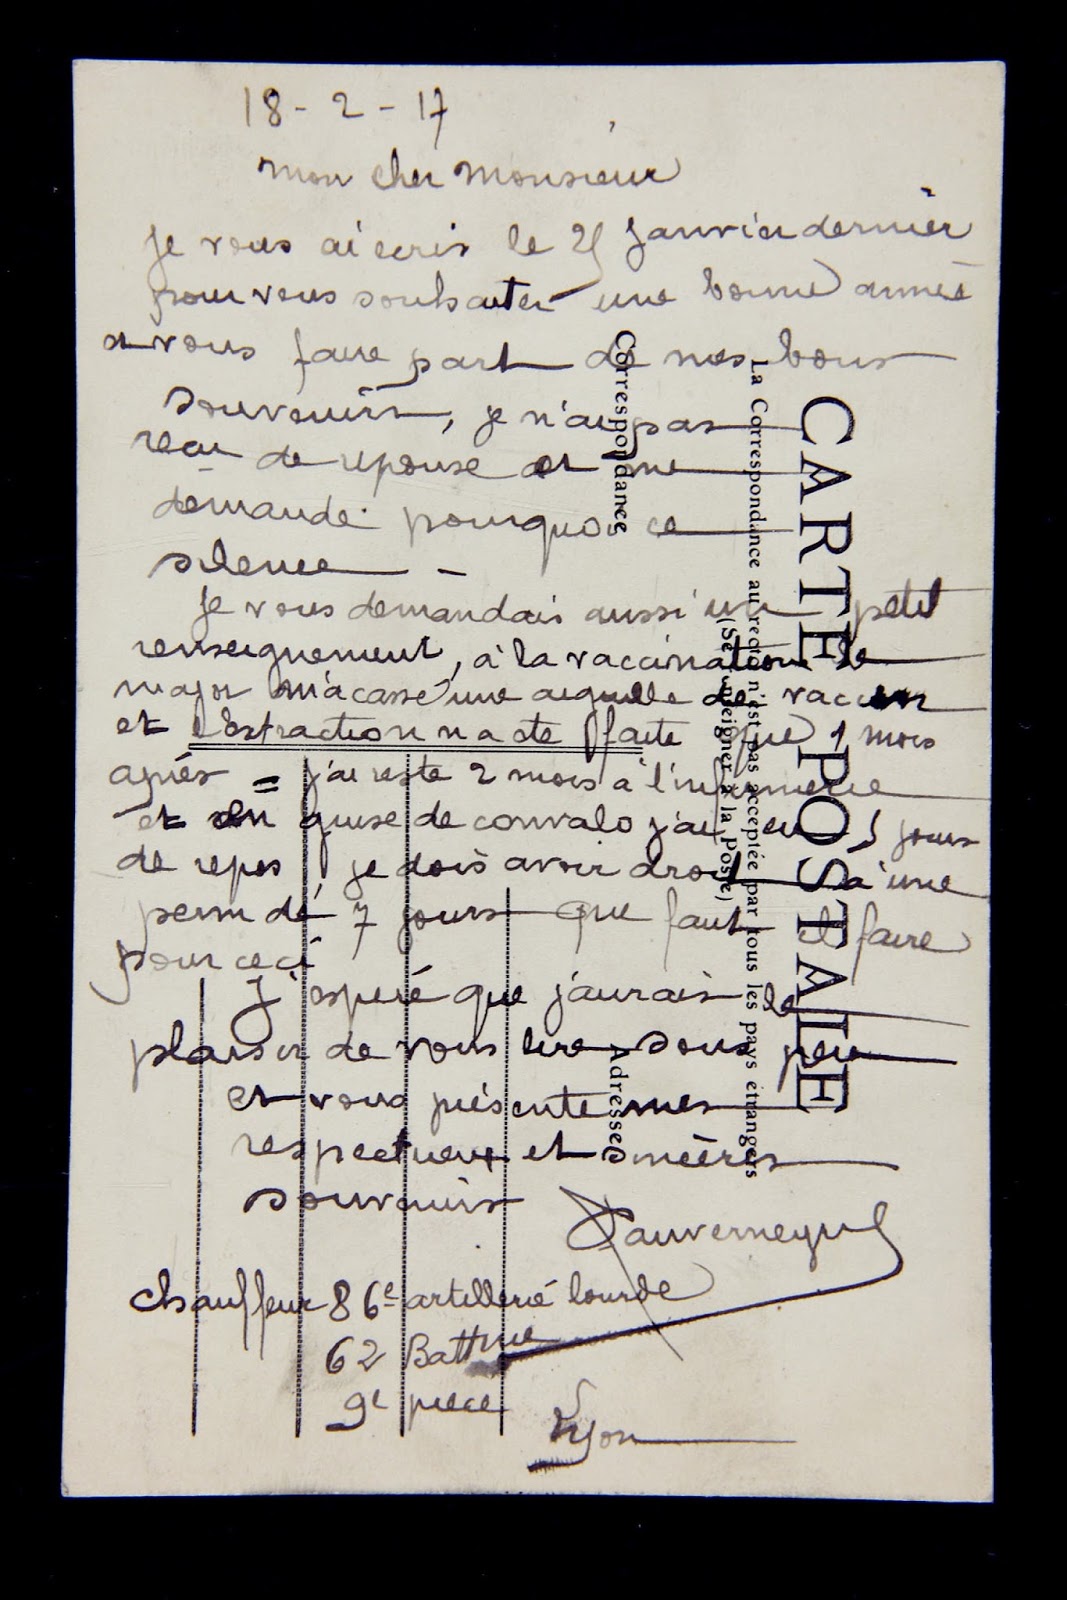 18 - 2 - 17
Mon cher Monsieur
Je vous ai écris le 25 Janvier dernier
pour vous souhaiter une bonne année
et vous faire part de mes bons
souvenirs, je n'ai pas
recu de reponse et me
demande pourquoi ce
silence -
Je vous demandais aussi un petit
renseignement, à la vaccination le
major m'a cassé une aiguille de vaccin
et l'extraction n'a ete faite que 1 mois
après = j'ai resté 2 mois à l'infirmerie
et en guise de convalo j'ai eu 5 jours
de repos je dois avoir droit à une
perm de 7 jours que faut il faire
pour ceci
J'espere que j'aurais le
plaisir de vous lire sous peu
et vous présente mes
respectueux et sincères
souvenirs
chauffeur 86e artillerie lourde
62 Battrie
9e piece
Lyon
CARTE POSTALE
La Correspondance au recto n'est pas acceptée par tous les pays étrangers
(Se renseigner à la Poste)
Correspondance
Adresse